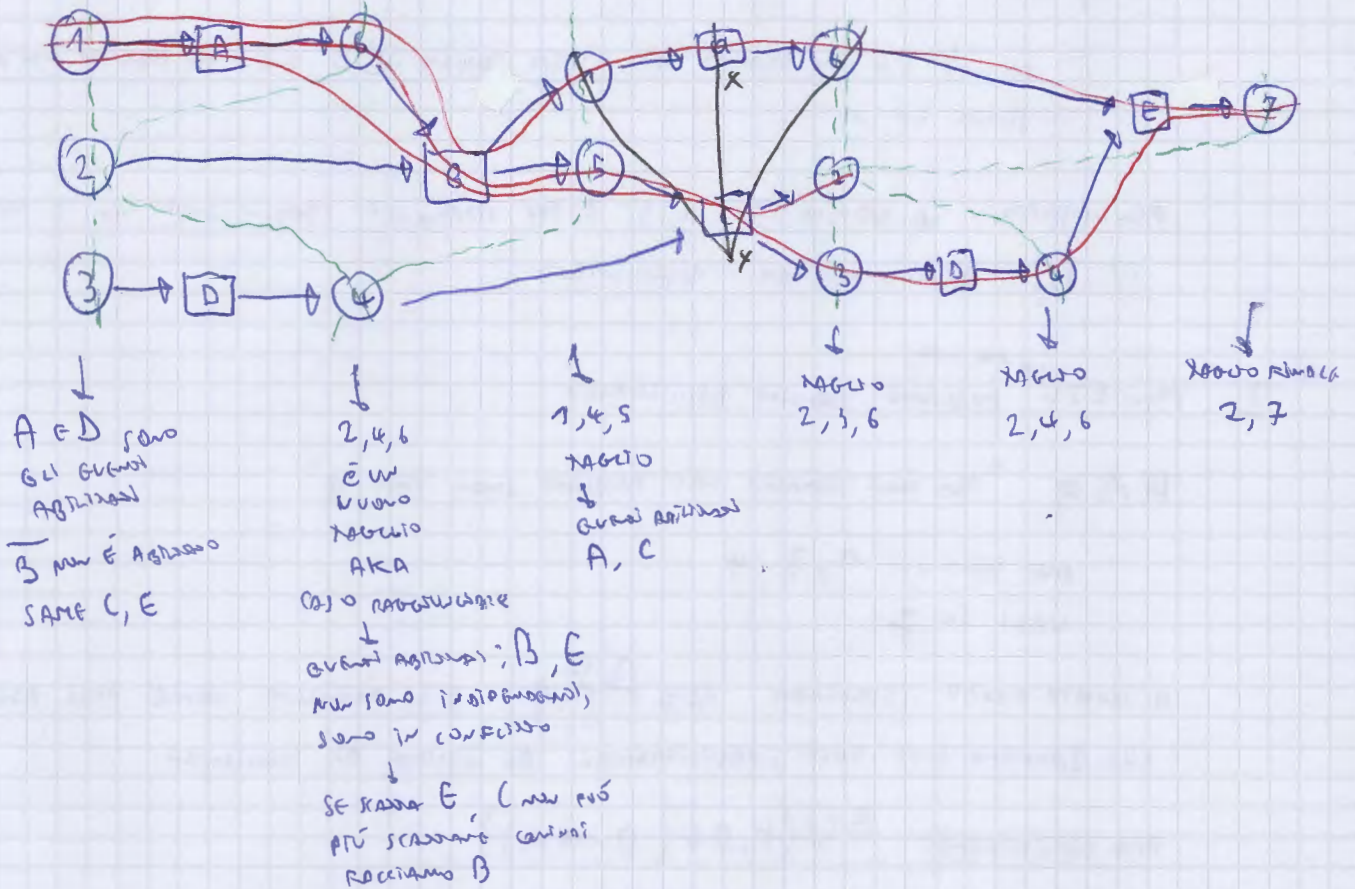 1 A 6
1 A 6
E 7
2 B 5
C 2
3 D 4
3 D 4
A E D SONO
GLI EVENTI
ABILITATI
B NON È ABILITATO
SAME C, E
2,4,6
È UN
NUOVO
TAGLIO
AKA
CASO RAGGIUNGIBILE
EVENTI ABILITATI: B, E
NON SONO INDIPENDENTI,
SONO IN CONFLITTO
SE SCATTA E C NON PUÓ
PIÙ SCATTARE QUINDI
FACCIAMO B
1,4,5
TAGLIO
EVENTI ABILITATI
A, C
TAGLIO
2,3,6
TAGLIO
2,4,6
TAGLIO FINALE
2,7